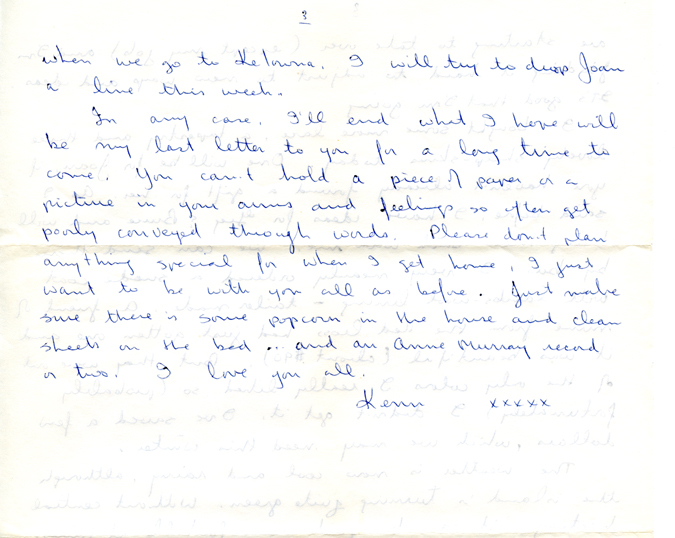 3
when we go to Kelowna. I will try to drop Joan
a line this week.
In any case, I'll end what I hope will
be my last letter to you for a long time to
come. You can't hold a piece of paper or a
picture in your arms and feelings so often get
poorly conveyed through words. Please don't plan
anything special for when I get home, I just
want to be with you all as before. Just make
sure there is some popcorn in the house and clean
sheets on the bed ... and an Anne Murray record
or two. I love you all.
Kenn xxxxx